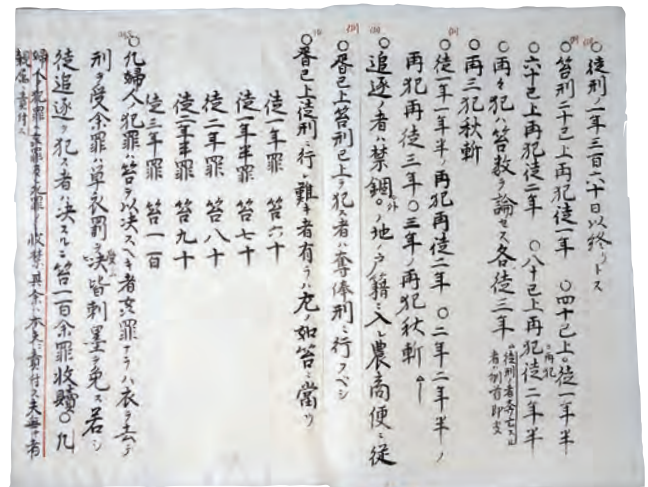 ○徒刑ノ一年三百六十日以終リトス
○笞刑二十已上再犯徒一年 ○四十已上再犯徒一年半
○六十已上再犯徒二年 ○八十已上再犯徒二年半
○再々犯ハ笞数ヲ論セス各徒三年
○再三犯秋斬
○徒年一年半ノ再犯再徒二年 ○二年二年半ノ
再犯再徒三年○三年ノ再犯秋斬
○追逐ノ者ハ禁錮外ノ地戸籍ニ入レ農商便ニ従
○胥已上笞刑已上ヲ犯ス者ハ奪俸刑ニ行スベシ
○胥已上徒刑ニ行レ難キ者有ラハ左ノ如笞ニ當ツ
徒一年罪 笞六十
徒一年半罪 笞七十
徒二年罪 笞八十
徒二年半罪 笞九十
徒三年罪 笞一百
○凡婦人犯罪ハ笞ヲ以決スヘキ者ハ衣ヲ去テ
刑ヲ受余罪ハ單衣罰ヲ決皆刺墨ヲ免ス若シ
徒追逐ヲ犯ス者ハ決スルニ笞一百余罪收贖○凡
婦人犯罪ハ死罪ノ收禁其余ハ本夫ニ責付ス夫無キ者
親屆ニ責付ス